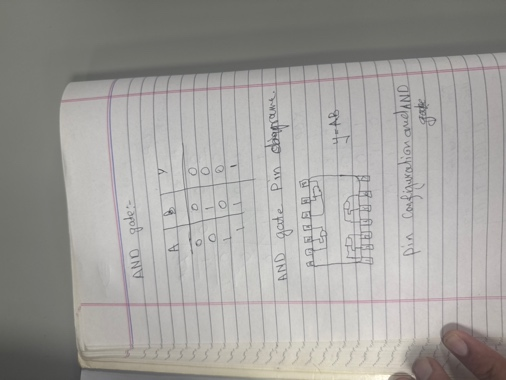 AND gate:-
A B Y
0 0 0
0 1 0
1 0 0
1 1 1
AND gate Pin diagram.
Y=AB
Pin Configuration and AND
gate